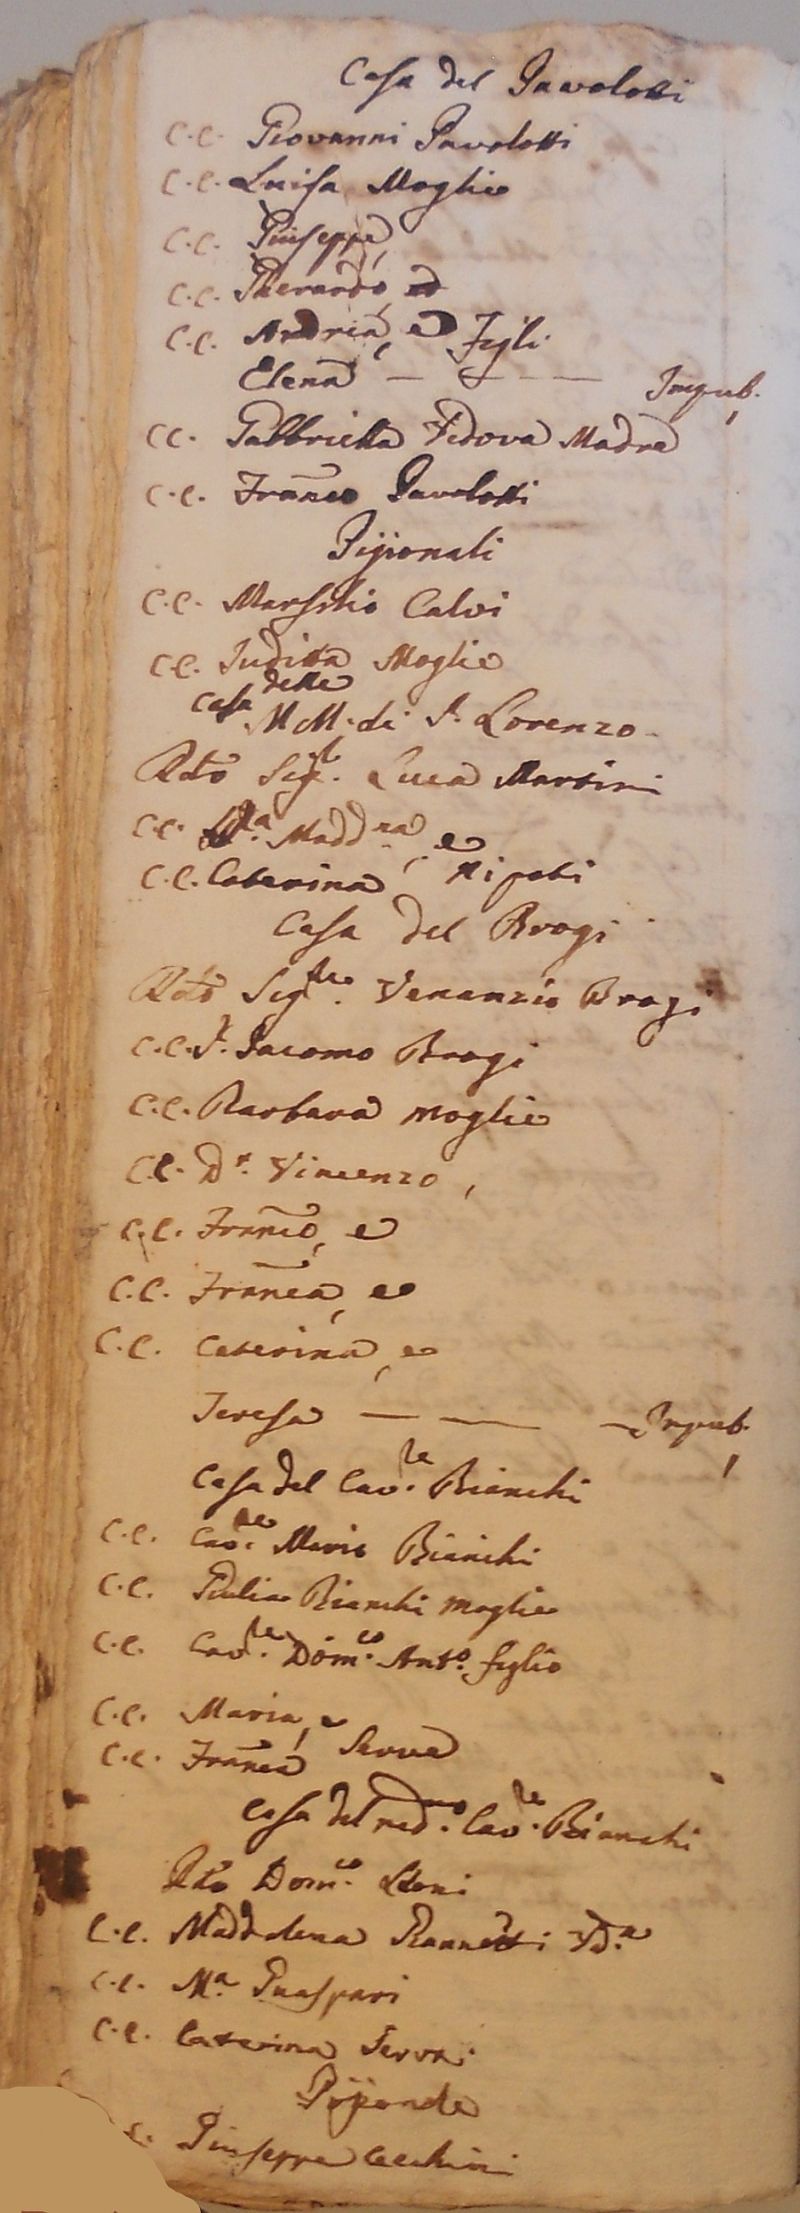 Casa del Pavolotti
C.C. Giovanni Pavolotti
C.C. Luisa Moglie
C.C. Giuseppe,
C.C. Gherardo, ed
C.C. Andrea, e Figli
Elena — — — Impub.
CC. Gabbriella Vedova Madre
C.C. Franco Pavolotti
Pijionali
C.C. Marsilio Calvi
C.C. Iuditta Moglie
Casa delle
M M. di S. Lorenzo
Rdo Sigr. Luca Martini
C.C. Madd.na, e
C.C. Caterina Nipoti
Casa del Brogi
Rdo Sigre. Venanzio Brogi
C.C. Sr. Giacomo Brogi
C.C. Barbara moglie
C.C. Dr. Vincenzo,
C.C. Franco, e
C.C. Franca, e
C.C. Caterina, e
Teresa — — — Impub.
Casa del Cav.re Bianchi
C.C. Cav.re Mario Bianchi
C.C. Giulia Bianchi moglie
C.C. Cav.re Dom.co Anto. figlio
C.C. Maria, e
C.C. Franca Serve
Casa del med.mo Cav.re Bianchi
Rdo Dom.co
C.C. Maddalena Giannetti Vd.a
C.C. M.a Guaspari
C.C. Caterina Serva
Pijonale
Giuseppe Cecchini